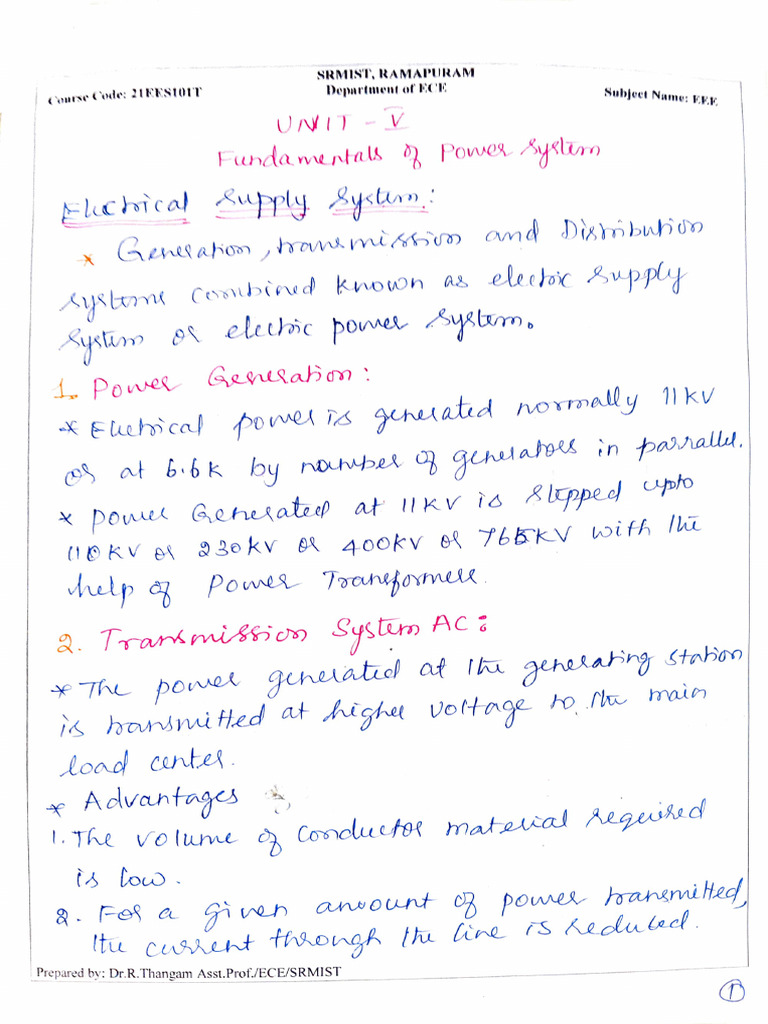 SRMIST, RAMAPURAM
Course Code: 21EES101T Department of ECE Subject Name: EEE
UNIT - V
Fundamentals of Power System
Electrical Supply System:
* Generation, transmission and Distribution
systems combined known as electric supply
system or electric power system.
1. Power Generation:
* Eletrical power is generated normally 11kV
or at 6.6k by number of generators in parrallel.
* power Generated at 11kV is stepped upto
110kV or 230kV or 400kV or 765kV with the
help of Power Transformers.
2. Transmission System AC:
* The power generated at the generating station
is transmitted at higher voltage to the main
load center.
* Advantages
1. The volume of conductor material required
is low.
2. For a given amount of power transmitted,
the current through the line is reduced.
Prepared by: Dr.R.Thangam Asst.Prof./ECE/SRMIST
1